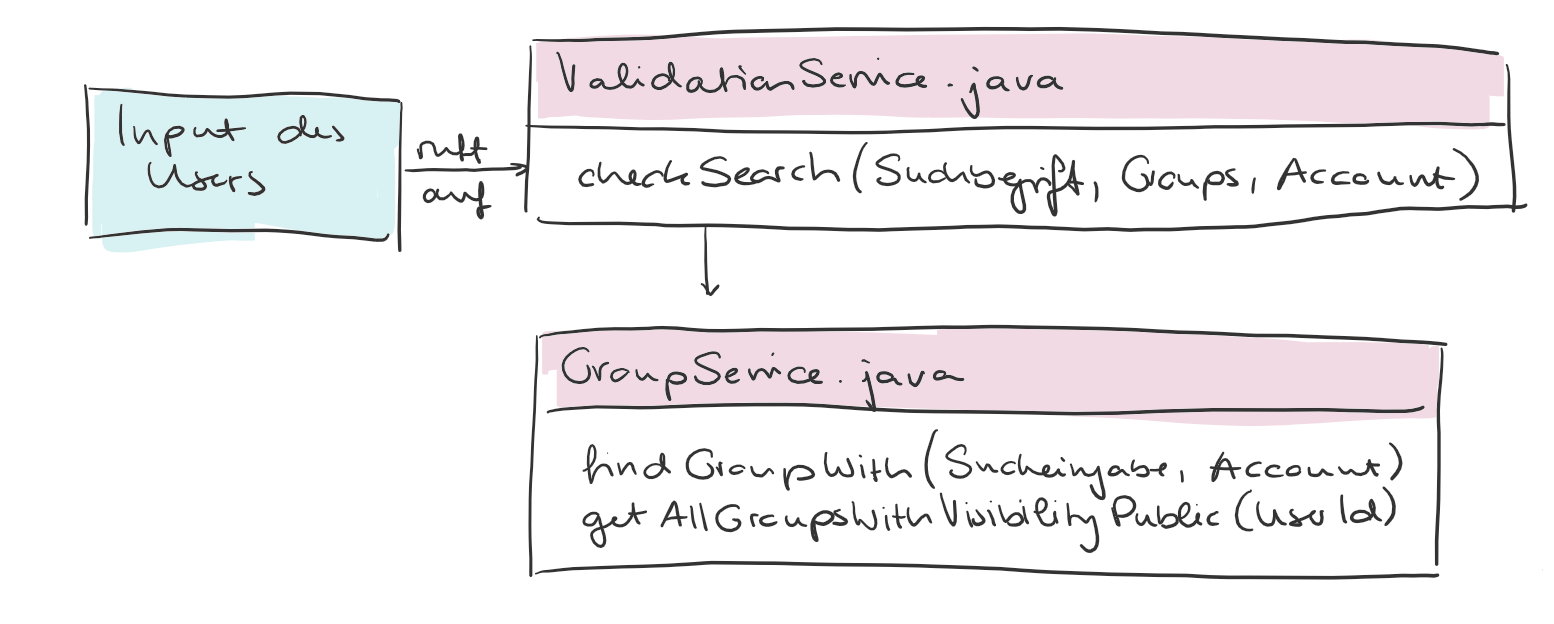 Input des
Users
ruft
auf
ValidationService.java
checkSearch(Suchbegriff, Groups, Account)
GroupService.java
findGroupWith(Sucheingabe, Account)
getAllGroupsWithVisibilityPublic(UserId)